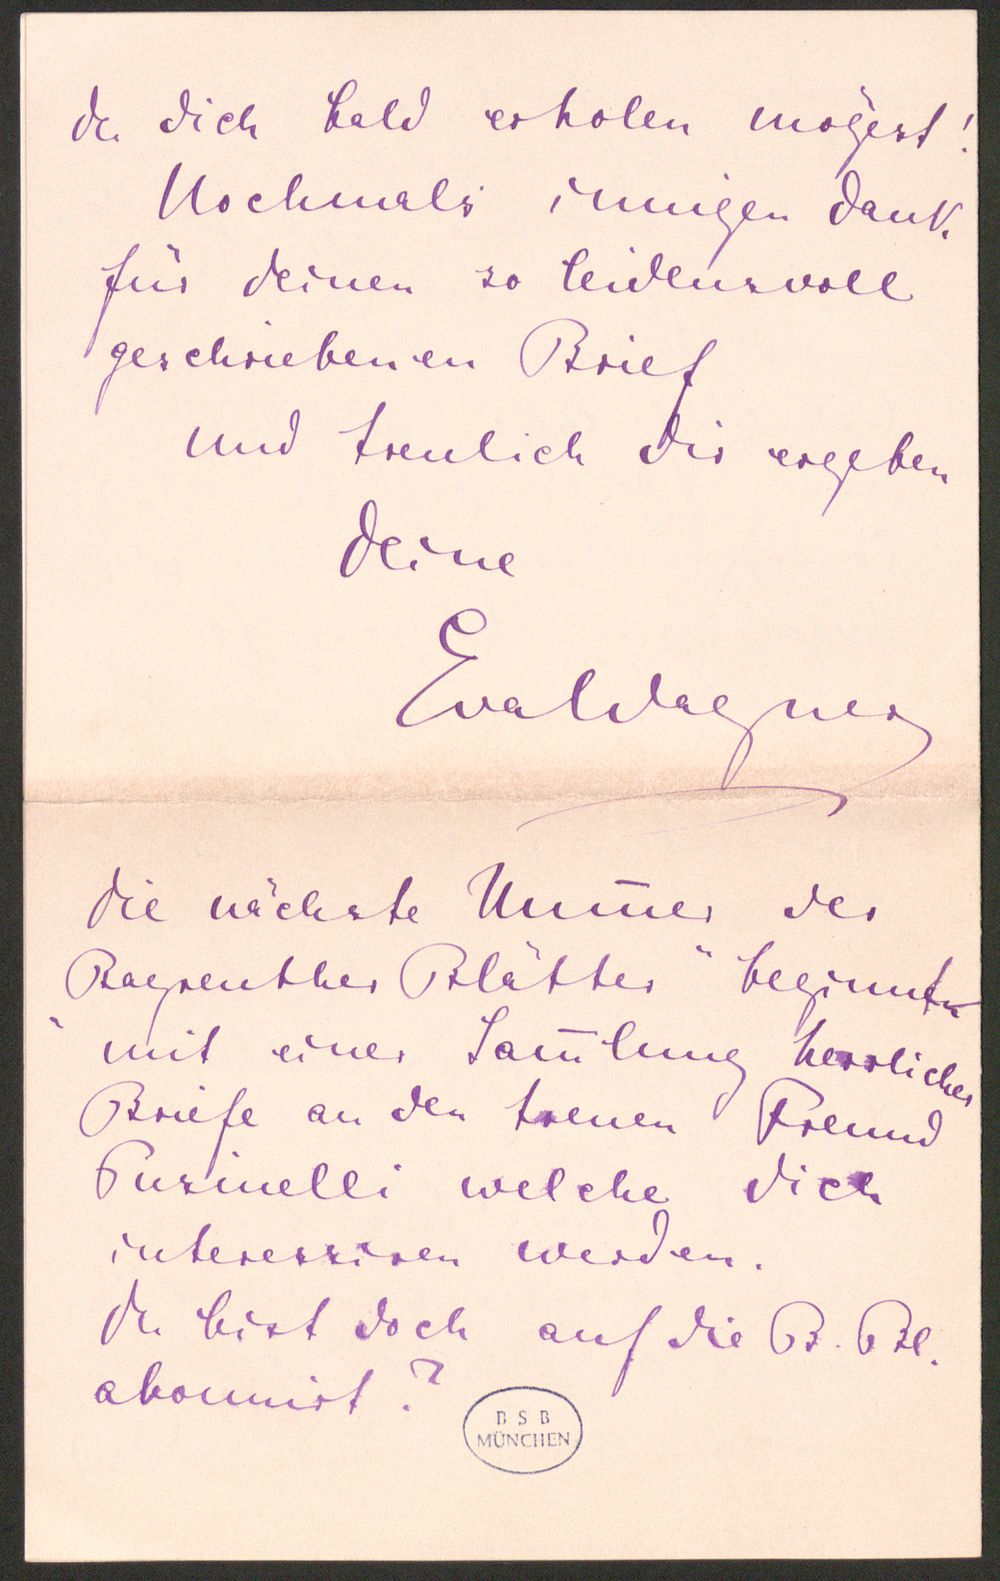 du dich bald erholen mögest!
Nochmals innigen Dank
für deinen so leidensvoll
geschriebenen Brief
und treulich dir ergeben
deine
Eva Wagner
die nächste Num̄er der
Bayreuther Blätter" beginnt
" mit einer Sam̄lung herrlicher
Briefe an den treuen Freund
Pusinelli welche dich
interessiren werden.
Du bist doch auf die B. Bl.
abonnirt?
B S B
MÜNCHEN